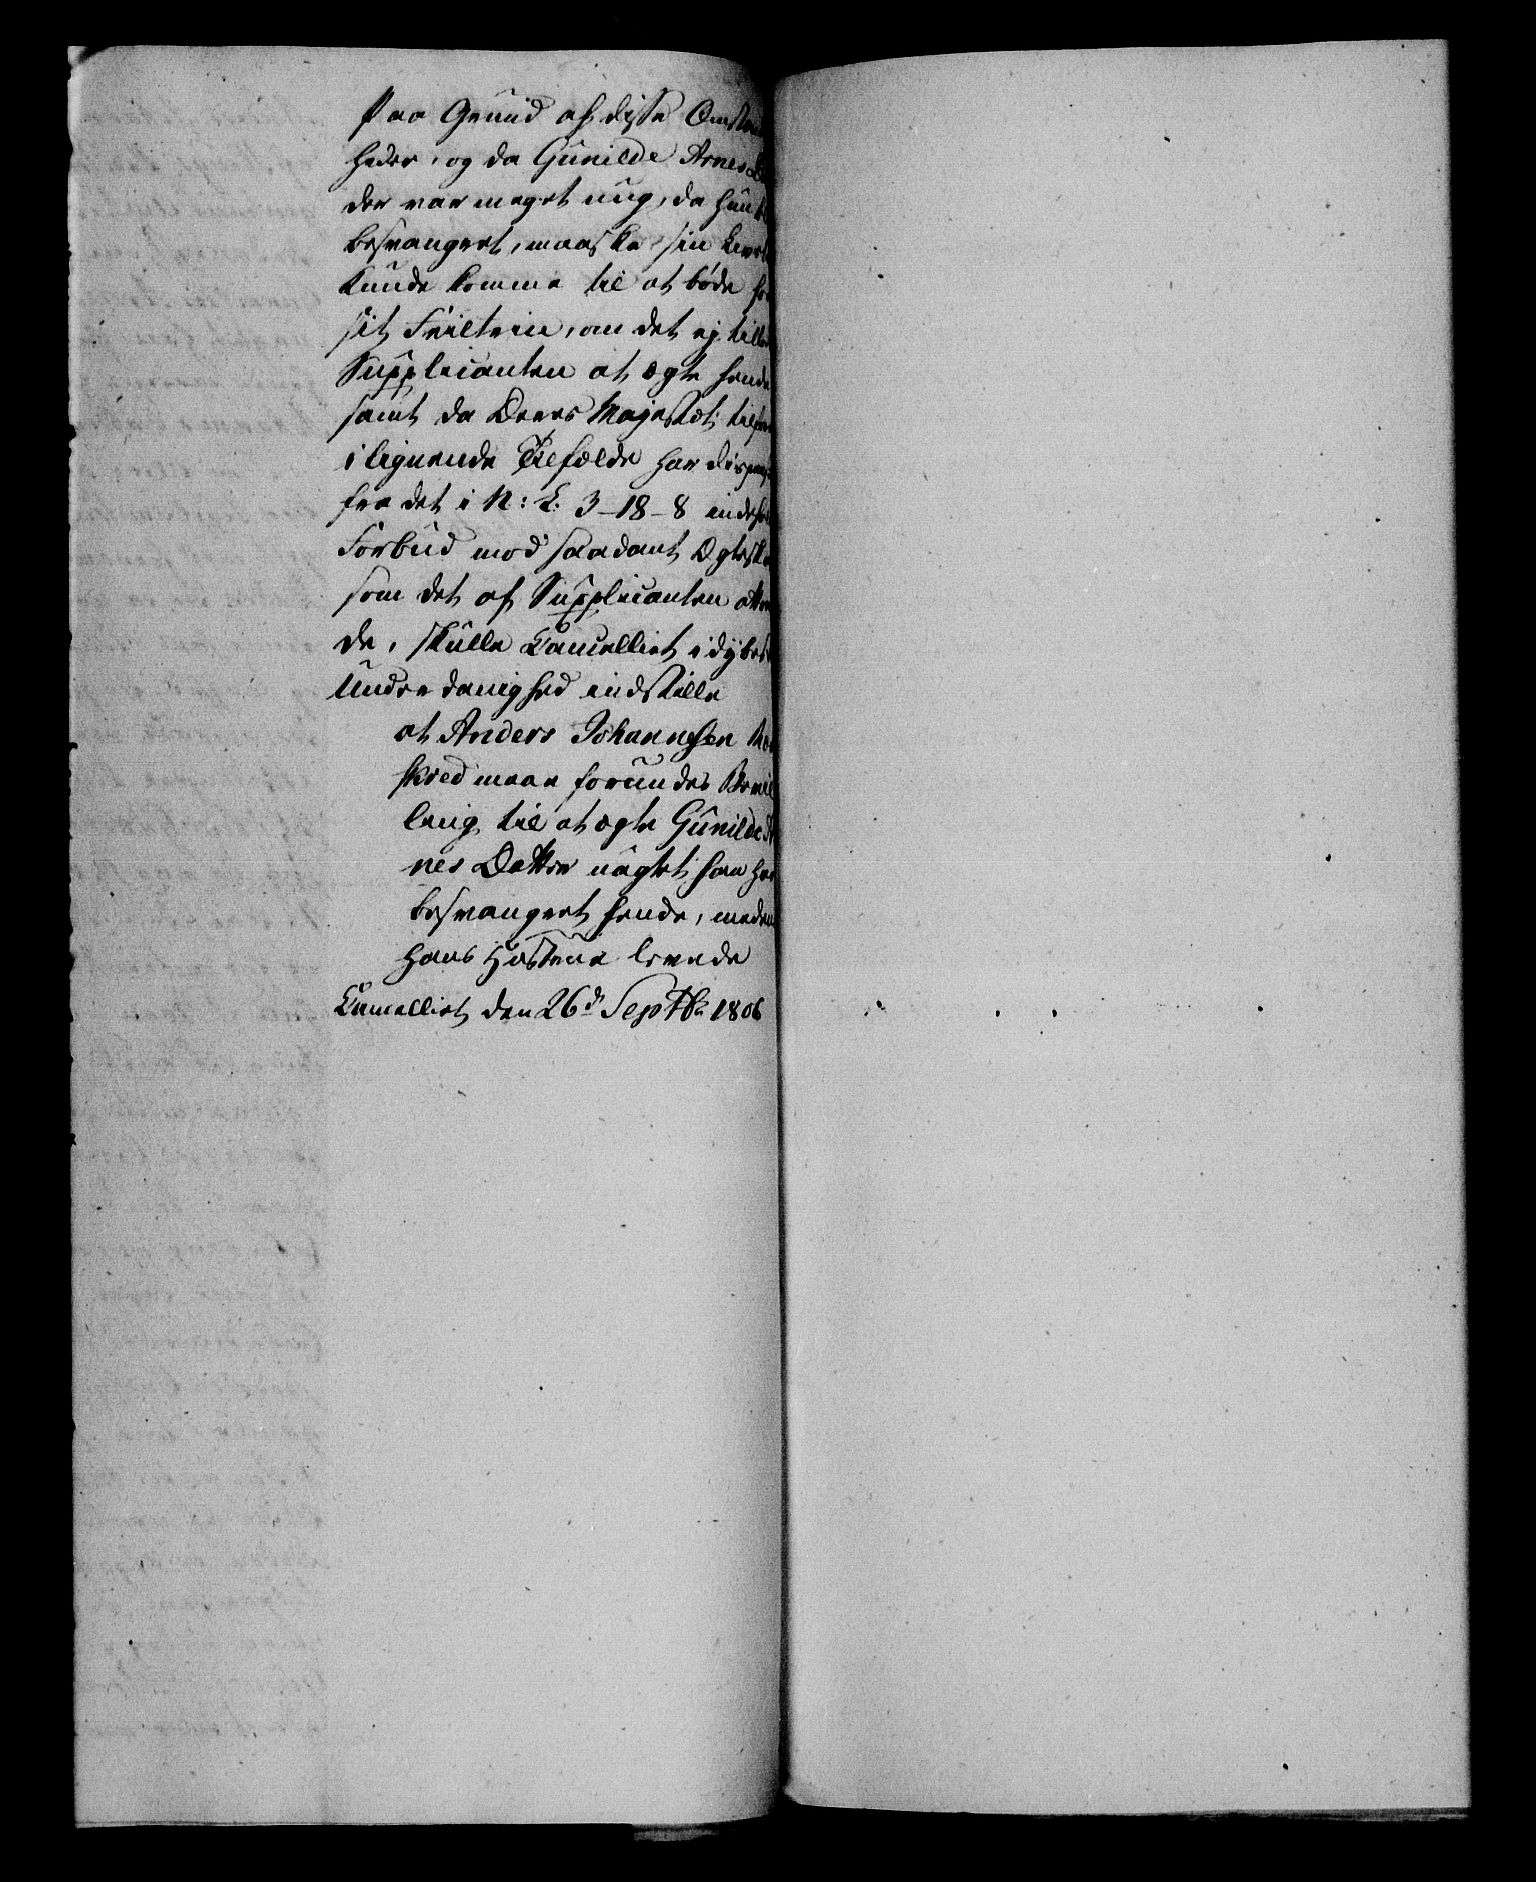 Paa Grund af disse Omstæn
heder, og da Gunilde Arnes D
der var meget ung, da hun b
besvangret, maaske sin Levet
kunde komme til at bøde for
sit Feiltrin, om det ej tillod
Supplicanten at ægte hende
samt da Deres Majestæt tilfor
i lignende Tilfælde har dispens
fra det i N: L: 3-18-8 indeho
Forbud mod saadant Ægteska
som det af Supplicanten attra
de, skulle Cancelliet i dybest
Underdanighed indstille
at Anders Johannesen
skred maae forundes Bevil
ling til at ægte Gunilde Ar
nes Datter uagtet han har
besvangret hende, medens
hans Hustrue levede
Cancelliet den 26d Septbr 1806